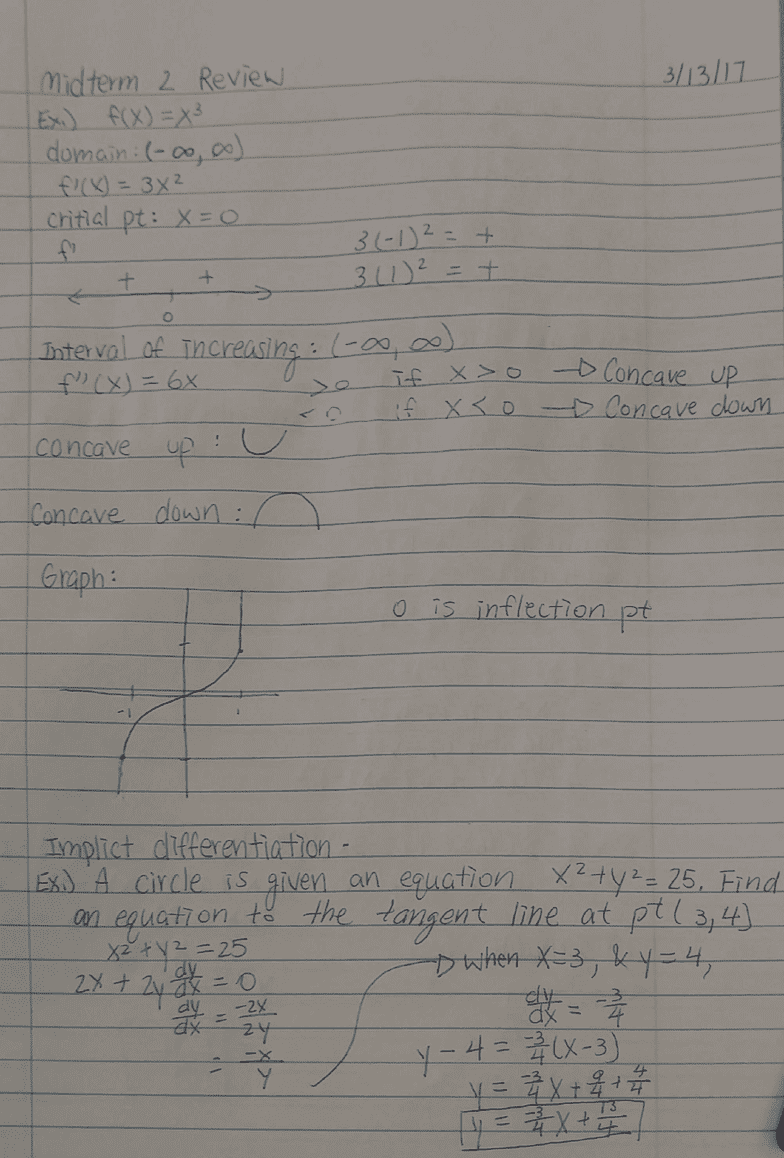 Midterm 2 Review 3/13/17
Ex.) f(x) = x³
domain: (-∞, ∞)
f'(x) = 3x²
critial pt: x = 0
f' 3(-1)² = +
+ + 3(1)² = +
0
Interval of increasing: (-∞, ∞)
f''(x) = 6x >0 if x > 0 → Concave up
<0 if x < 0 → Concave down
concave up:
Concave down:
Graph:
0 is inflection pt
-1 1
Implict differentiation -
Ex.) A circle is given an equation x² + y² = 25. Find
an equation to the tangent line at pt (3,4)
x² + y² = 25 → when x=3, & y=4,
2x + 2y dy/dx = 0 dy/dx = -3/4
dy/dx = -2x/2y y - 4 = -3/4 (x-3)
= -x/y y = -3/4 x + 9/4 + 4/4
y = -3/4 x + 13/4